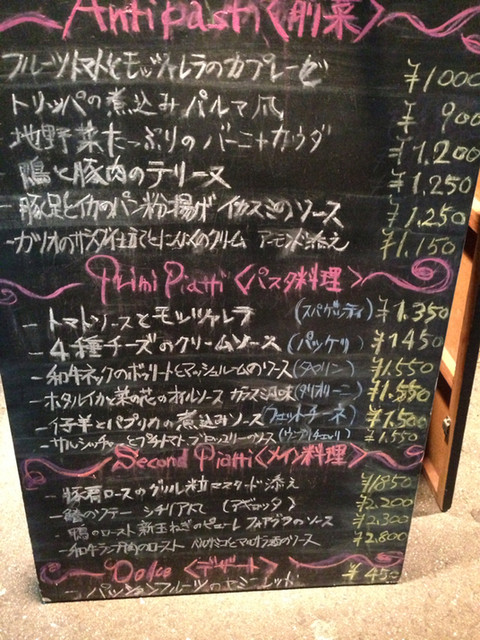 Antipasti〈前菜〉
フルーツトマトとモッツァレラのカプレーゼ ¥1000
トリッパの煮込み パルマ風 ¥900
地野菜たっぷりのバーニャカウダ ¥1,200
鴨と豚肉のテリーヌ ¥1,250
- 豚足とイカのパン粉揚げ イカスミのソース ¥1,250
- カツオのサラダ仕立て にんにくのクリーム アーモンド添え ¥1,150
Primi Piatti〈パスタ料理〉
- トマトソースとモッツァレラ (スパゲッティ) ¥1,350
- 4種チーズのクリームソース (パッケリ) ¥1450
- 和牛ネックのボッリートとマッシュルームのソース ¥1,550
- ホタルイカと菜の花のオイルソース カラスミ風味 (タリオリーニ) ¥1,550
- 仔羊とパプリカの煮込みソース (フェットチーネ) ¥1,500
- サルシッチャとプチトマト ブロッコリーのソース ¥1,550
Second Piatti〈メイン料理〉
- 豚肩ロースのグリル 粒マスタード添え ¥1850
ソテー シチリア風 ¥2,200
- 鴨のロースト 新玉ねぎのピューレ フォアグラのソース ¥2,300
- 和牛ランプ肉のロースト ¥2,800
Dolce〈デザート〉 ¥450
- パッションフルーツの